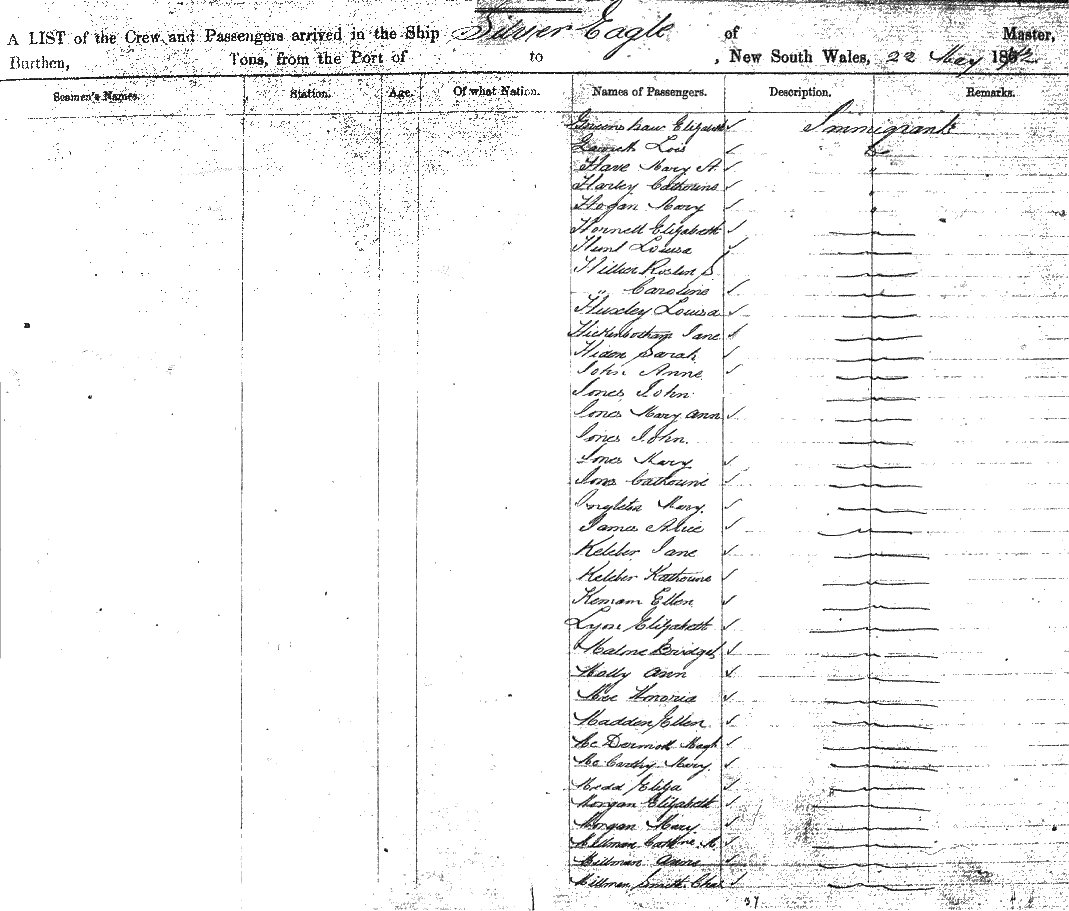 A LIST of the Crew and Passengers arrived in the Ship Silver Eagle of Master,
Burthen, Tons, from the Port of to , New South Wales, 22 May 18
Seamen's Names. Station. Age. Of what Nation. Names of Passengers. Description. Remarks.
Greenshaw Elizabeth ✓ Immigrants
Lois ✓
Hare Mary A. ✓ "
Harley Catherine ✓ "
Hogan Mary ✓ "
Hornell Elizabeth ✓
Hunt Louisa ✓
Hillier
" Caroline ✓
Huxley Louisa ✓
Hickenbotham Jane ✓
Hiden Sarah ✓
John Anne ✓
Jones John
Jones Mary Ann ✓
Jones John.
Jones Mary ✓
Jones Catherine ✓
Ingleton Mary. ✓
James Alice ✓
Keleher Jane ✓
Keleher Katherine ✓
Ellen ✓
Lyon Elizabeth ✓
Malone Bridget ✓
Mally Ann ✓
Mee Honoria ✓
Madden Ellen ✓
McDermott Magt ✓
McCarthy Mary. ✓
Medd Eliza ✓
Morgan Elizabeth ✓
Morgan Mary ✓
Millman Cathrine M. ✓
Millman Annie ✓
Millman Smith Chas ✓
37